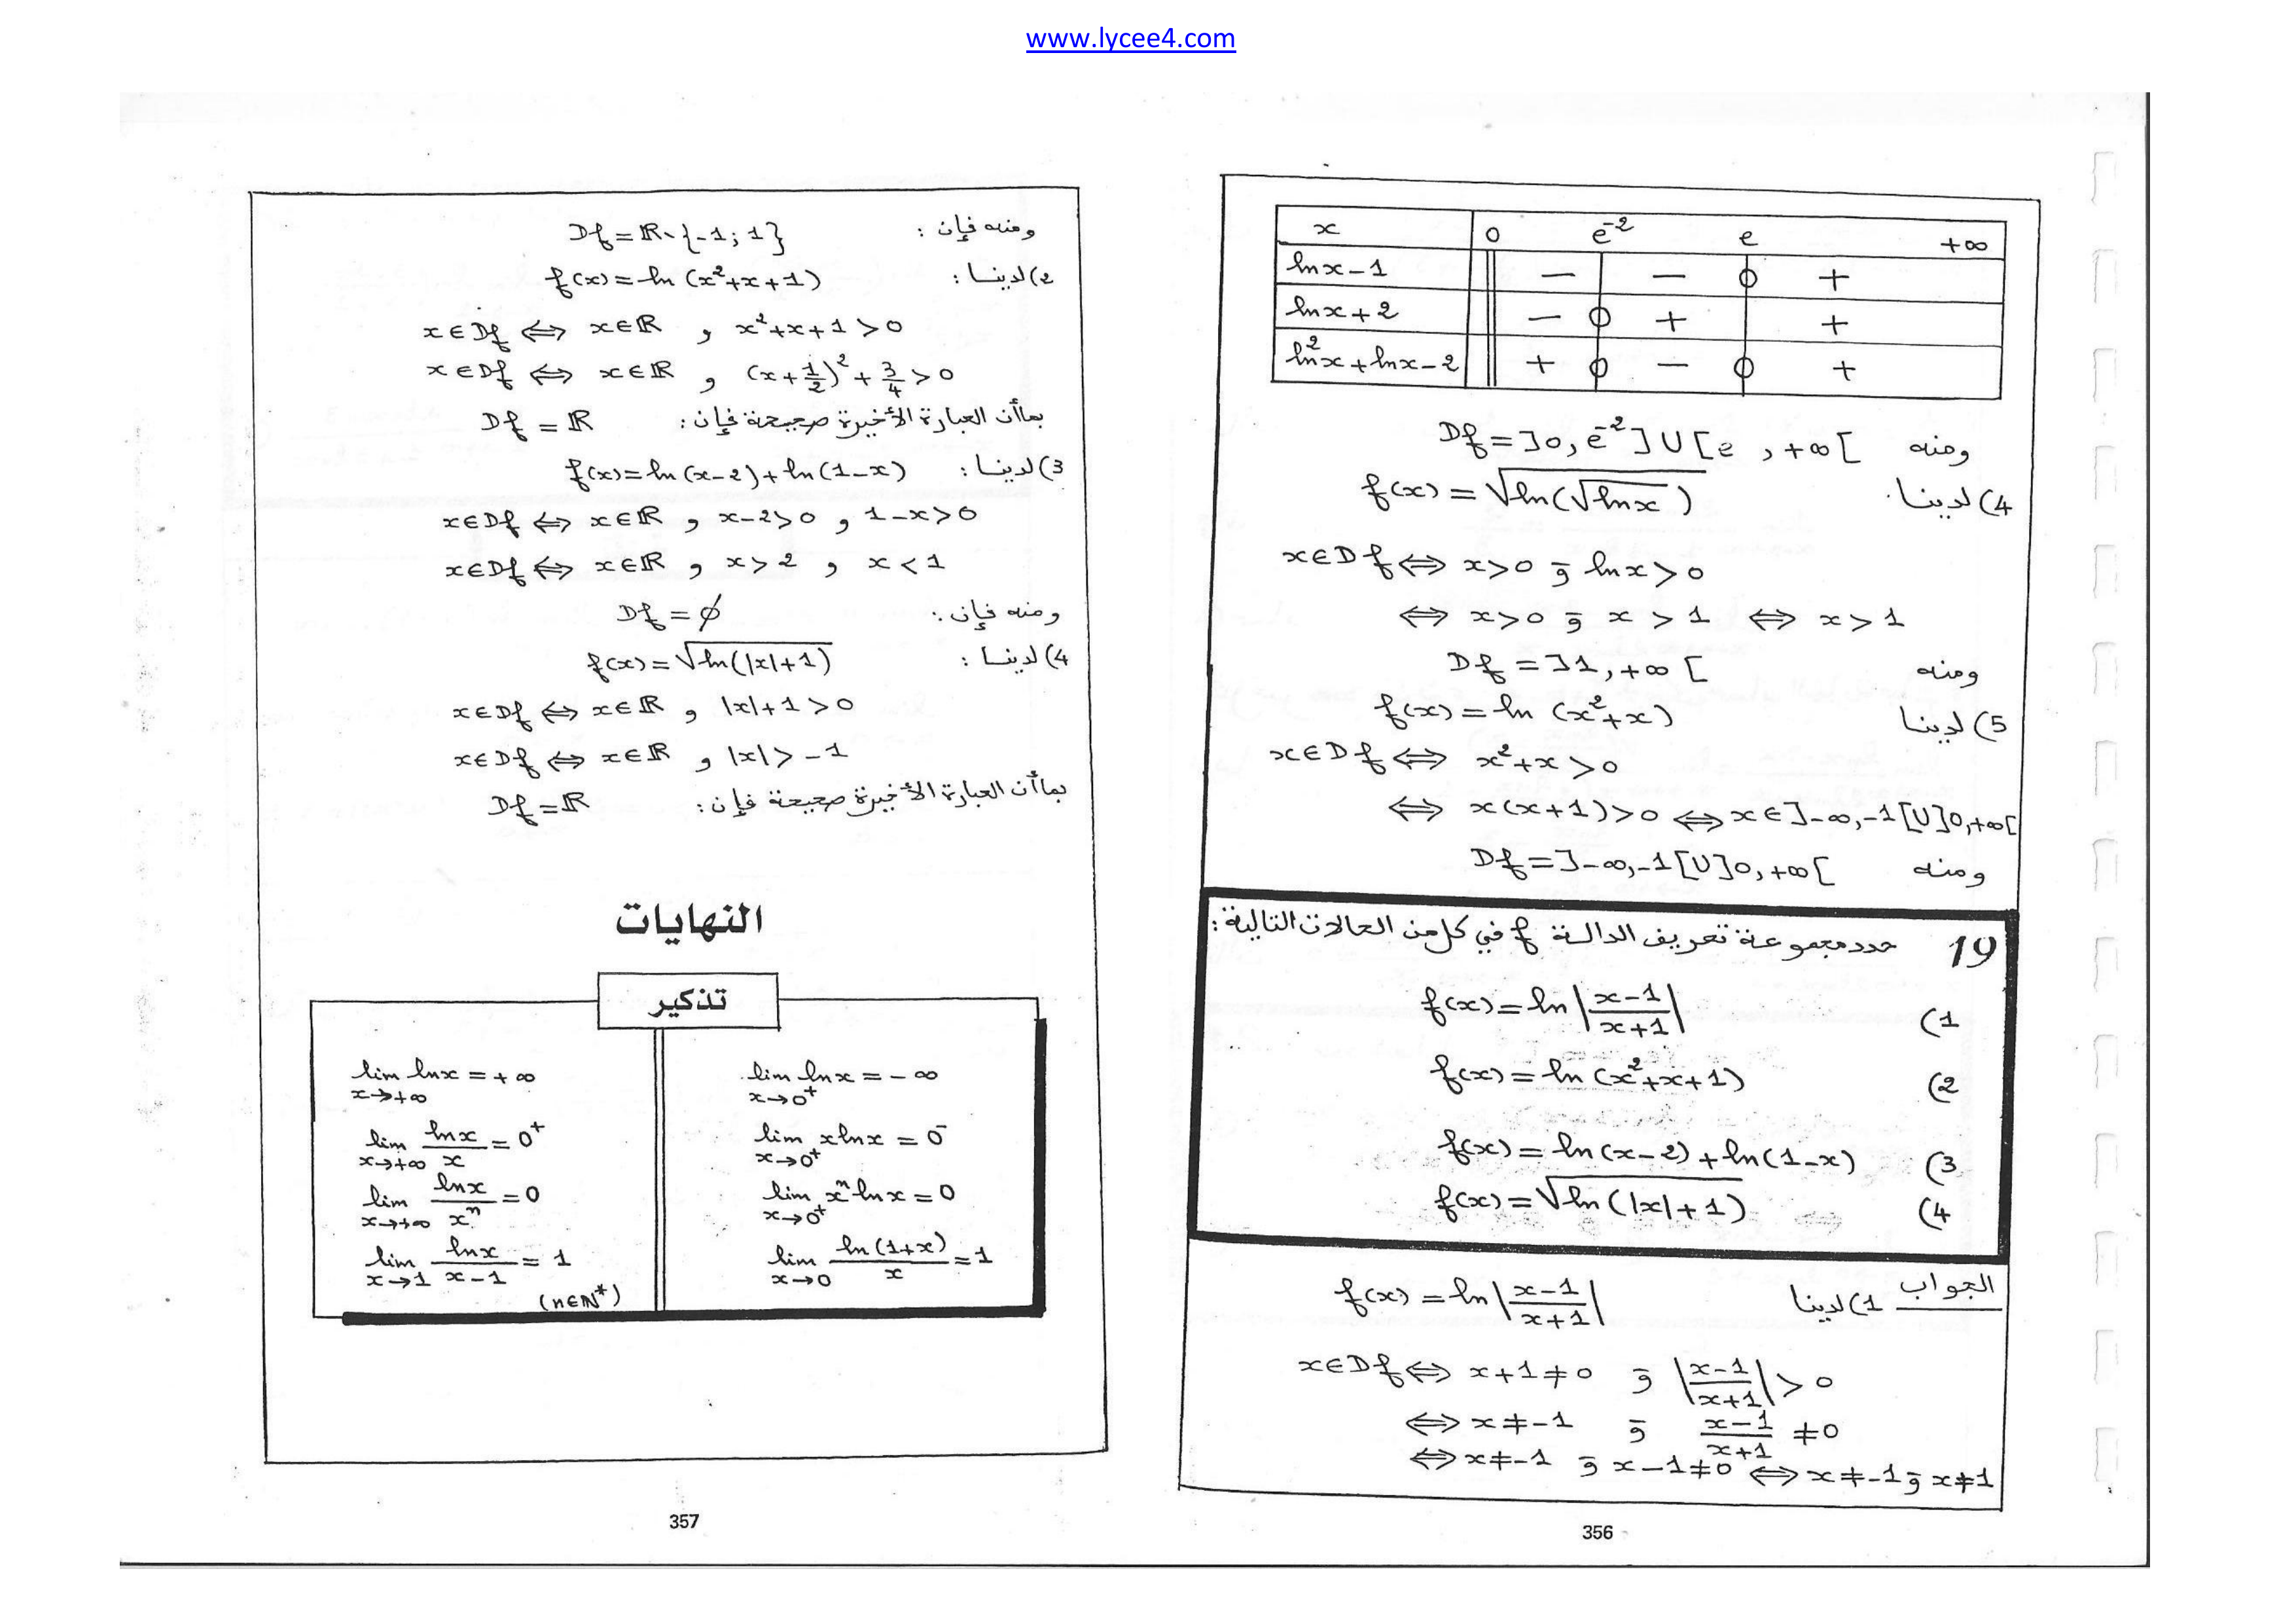 www.lycee4.com
x 0 e⁻² e +∞
lnx-1 − − 0 +
lnx+2 − 0 + +
ln²x+lnx-2 + 0 − 0 +
ومنه Df=]0,e⁻²]U[e,+∞[
4) لدينا f(x)=√(ln(√lnx))
x∈Df⇔ x>0 و lnx>0
⇔ x>0 و x>1 ⇔ x>1
ومنه Df=]1,+∞[
5) لدينا f(x)=ln(x²+x)
x∈Df⇔ x²+x>0
⇔ x(x+1)>0 ⇔x∈]-∞,-1[U]0,+∞[
ومنه Df=]-∞,-1[U]0,+∞[
19 حدد مجموعة تعريف الدالة f في كل من الحالات التالية:
1) f(x)=ln|(x-1)/(x+1)|
2) f(x)=ln(x²+x+1)
3) f(x)=ln(x-2)+ln(1-x)
4) f(x)=√(ln(|x|+1))
الجواب 1) لدينا f(x)=ln|(x-1)/(x+1)|
x∈Df⇔ x+1≠0 و |(x-1)/(x+1)|>0
⇔ x≠-1 و (x-1)/(x+1)≠0
⇔x≠-1 و x-1≠0 ⇔ x≠-1 و x≠1
356
ومنه فإن: Df=ℝ∖{-1;1}
2) لدينا: f(x)=ln(x²+x+1)
x∈Df ⇔ x∈ℝ و x²+x+1>0
x∈Df ⇔ x∈ℝ و (x+1/2)²+3/4>0
بما أن العبارة الأخيرة صحيحة فإن: Df=ℝ
3) لدينا: f(x)=ln(x-2)+ln(1-x)
x∈Df ⇔ x∈ℝ و x-2>0 و 1-x>0
x∈Df ⇔ x∈ℝ و x>2 و x<1
ومنه فإن: Df=∅
4) لدينا: f(x)=√(ln(|x|+1))
x∈Df ⇔ x∈ℝ و |x|+1>0
x∈Df ⇔ x∈ℝ و |x|>-1
بما أن العبارة الأخيرة صحيحة فإن: Df=ℝ
النهايات
تذكير
lim x→0⁺ lnx=-∞
lim x→0⁺ xlnx=0⁻
lim x→0⁺ xⁿlnx=0
lim x→0 ln(1+x)/x=1
lim x→+∞ lnx=+∞
lim x→+∞ lnx/x=0⁺
lim x→+∞ lnx/xⁿ=0
lim x→1 lnx/(x-1)=1
(n∈ℕ*)
357